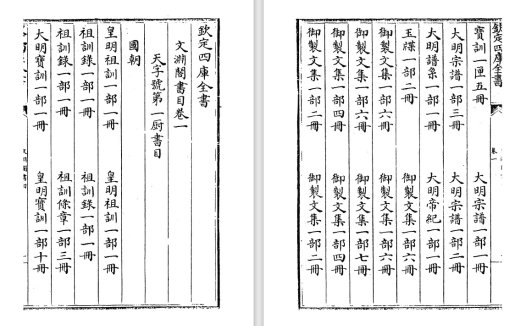 欽定四庫全書
文淵閣書目卷一
天字號第一厨書目
國朝
皇明祖訓一部一冊 皇明祖訓一部一冊
祖訓錄一部一冊 祖訓錄一部一冊
祖訓錄一部一冊 祖訓條章一部三冊
大明寶訓一部一冊 皇明寶訓一部十冊
欽定四庫全書
卷一
寶訓一匣五冊 大明宗譜一部一冊
大明宗譜一部三冊 大明宗譜一部二冊
大明譜系一部一冊 大明帝紀一部一冊
玉牒一部二冊 御製文集一部六冊
御製文集一部六冊 御製文集一部六冊
御製文集一部六冊 御製文集一部七冊
御製文集一部四冊 御製文集一部四冊
御製文集一部二冊 御製文集一部二冊